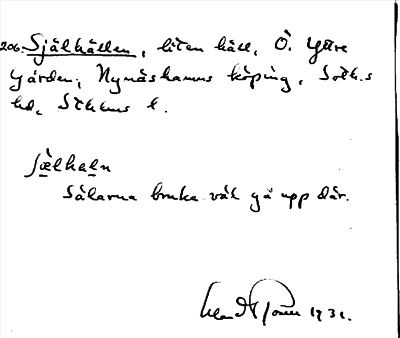 206. Själhällen, liten häll, Ö. Yttre
Gården, Nynäshamns köping, Soth.s
hd, Sthlms l.
sælhaln
Sälarna bruka väl gå upp där.
1931.